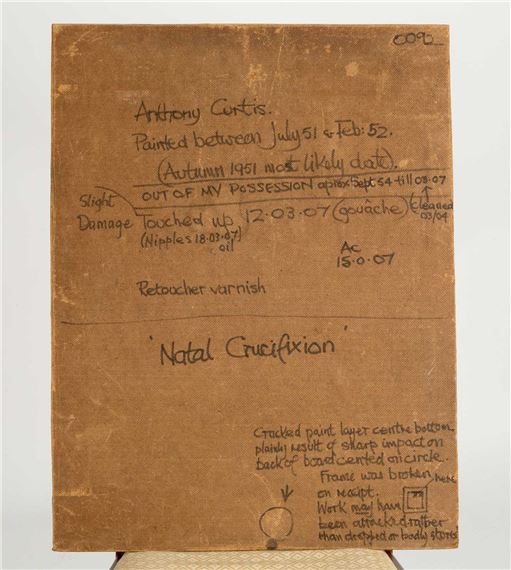 0092
Anthony Curtis.
Painted between July 51 & Feb: 52.
(Autumn 1951 most likely date).
OUT OF MY POSSESSION aprox Sept 54 till 03.07
Slight
Damage
Touched up 12.03.07 (gouâche) (cleaned
03/04
(Nipples 18.03.07)
oil
AC
15.0.07
Retoucher varnish
'Natal Crucifixion'
Cracked paint layer centre bottom
plainly result of sharp impact on
back of board centred on circle.
Frame was broken here
on receipt.
Work may have
been attacked rather
than dropped or badly stored